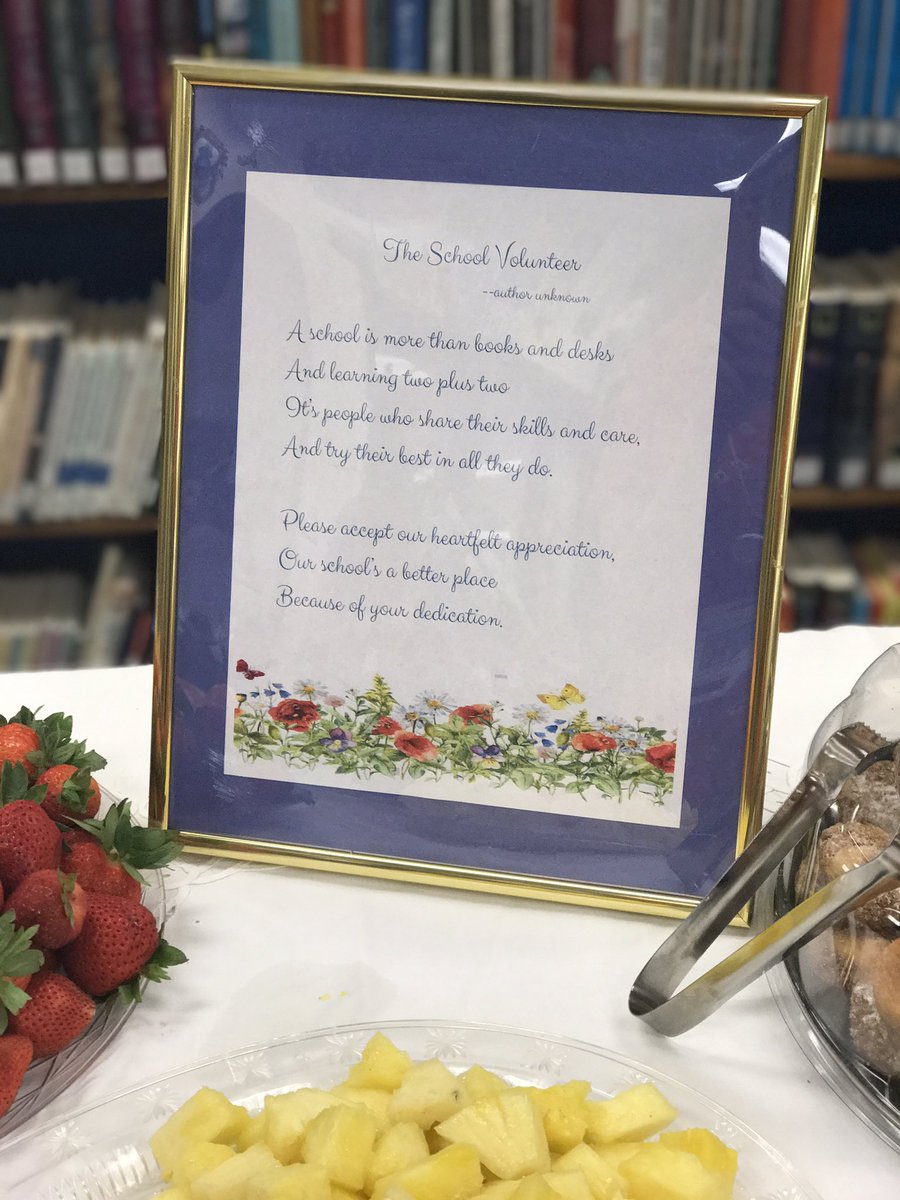 The School Volunteer
--author unknown
A school is more than books and desks
And learning two plus two
It's people who share their skills and care,
And try their best in all they do.
Please accept our heartfelt appreciation,
Our school's a better place
Because of your dedication.